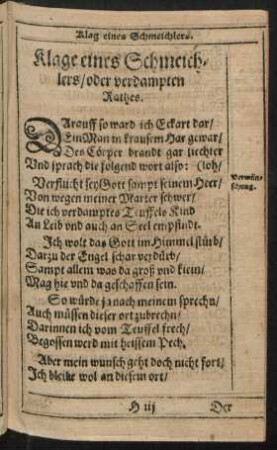 Klag eines Schmeichlers.
Klage eines Schmeich-
lers/ oder verdampten
Rathes.
DArauff so ward ich Eckart dar/
Ein Man in krausem Har gewar/
Des Cörper brandt gar liechter
Vnd sprach die folgend wort also: (loh/
Verflucht sey Gott sampt seinem Heer/
Verwün-
schung.
Von wegen meiner Marter schwer/
Die ich verdamptes Teuffels Kind
An Leib vnd auch an Seel empfindt.
Ich wolt das Gott im Himmel stürb/
Darzu der Engel schar verdürb/
Sampt allem was da groß vnd klein/
Mag hie vnd da geschaffen sein.
So würde ja nach meinem sprechn/
Auch müssen dieser ort zubrechn/
Darinnen ich vom Teuffel frech/
Begossen werd mit heissem Pech.
Aber mein wunsch geht doch nicht fort/
Ich bleibe wol an diesem ort/
H iij
Der